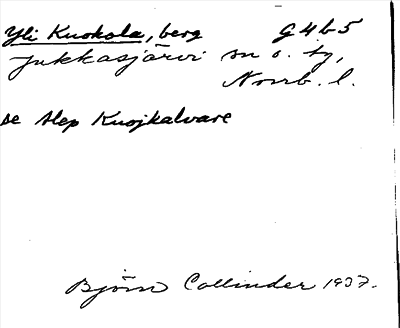 Yli Kuokola, berg G4b5
Jukkasjärvi sn o. tg,
Norrb. l.
se Alep Kuojkalvare
Björn Collinder 1937.